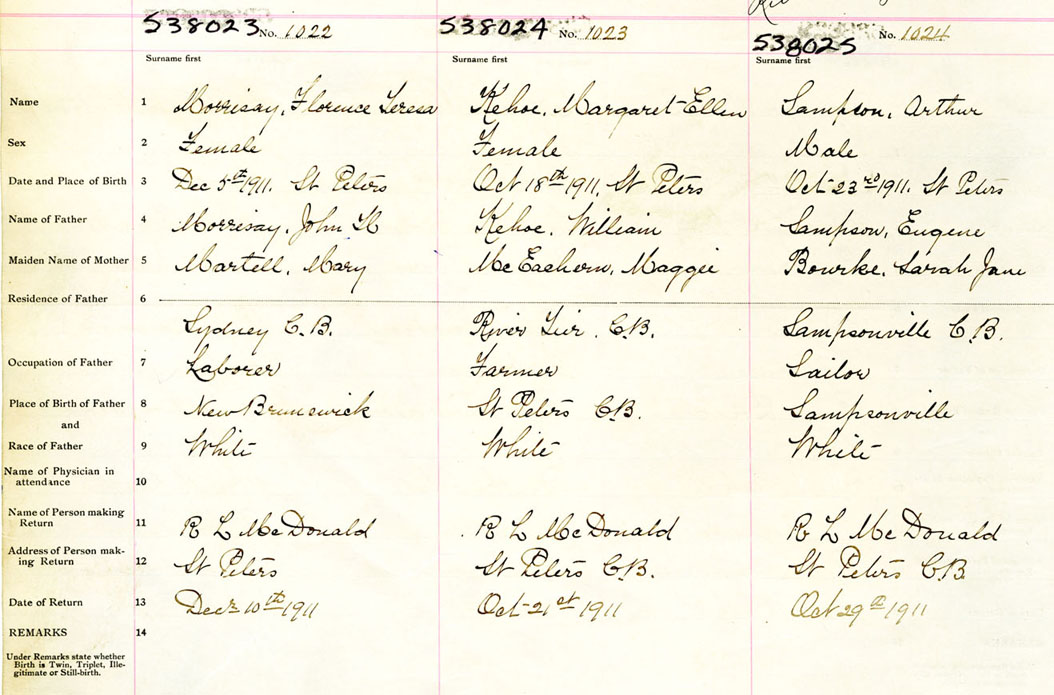 538023 No. 1022 538024 No. 1023 538025 No. 1024
Surname first Surname first Surname first
Name 1 Morrisay, Florence Teresa Kehoe, Margaret Ellen Sampson, Arthur
Sex 2 Female Female Male
Date and Place of Birth 3 Dec 5th 1911. St Peters Oct 18th 1911, St Peters Oct 23rd 1911. St Peters
Name of Father 4 Morrisay, John Kehoe, William Sampson, Eugene
Maiden Name of Mother 5 Martell, Mary McEachern, Maggie Bourke, Sarah Jane
Residence of Father 6
Sydney C.B. River Tier, C.B. Sampsonville C.B.
Occupation of Father 7 Laborer Farmer Sailor
Place of Birth of Father 8 New Brunswick St Peters C.B. Sampsonville
and
Race of Father 9 White White White
Name of Physician in
attendance 10
Name of Person making
Return 11 R L McDonald R L McDonald R L McDonald
Address of Person mak-
ing Return 12 St Peters St Peters C.B. St Peters C.B.
Date of Return 13 Decr 10th 1911 Oct 21st 1911 Oct 29th 1911
REMARKS 14
Under Remarks state whether
Birth is Twin, Triplet, Ille-
gitimate or Still-birth.